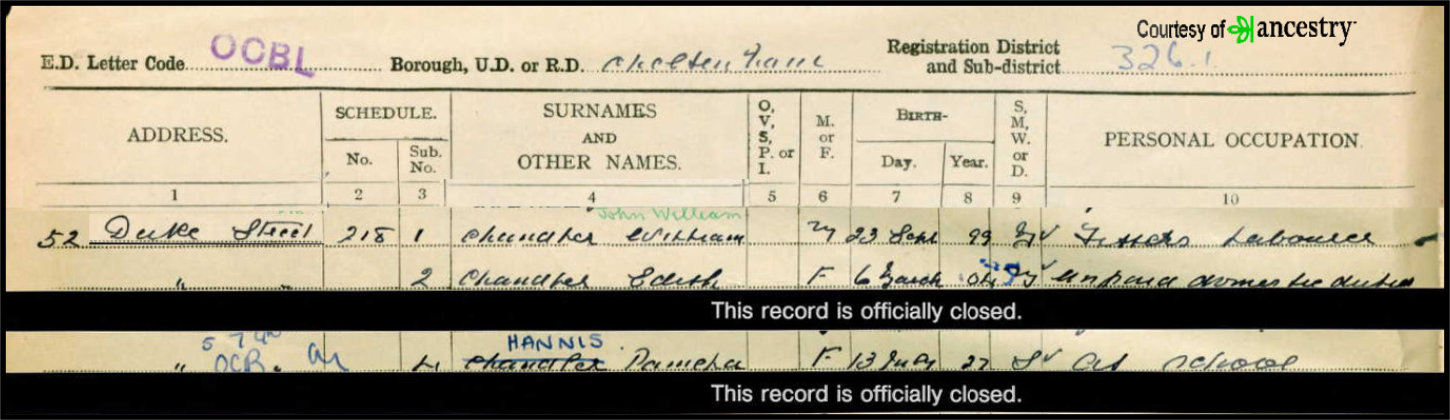 Courtesy of ancestry
E.D. Letter Code OCBL Borough, U.D. or R.D. Cheltenham Registration District and Sub-district 326.1
ADDRESS. SCHEDULE. No. Sub. No. SURNAMES AND OTHER NAMES. O, V, S, P. or I. M. or F. BIRTH- Day. Year. S, M, W. or D. PERSONAL OCCUPATION.
1 2 3 4 5 6 7 8 9 10
John William
52 Duke Street 218 1 Chandler William M 23 Sept 99 M Labourer
" " 2 Chandler Edith F 6 March M unpaid domestic duties
This record is officially closed.
HANNIS
" OCR. 4 Chandler Pamela F 13 27 S At School
This record is officially closed.